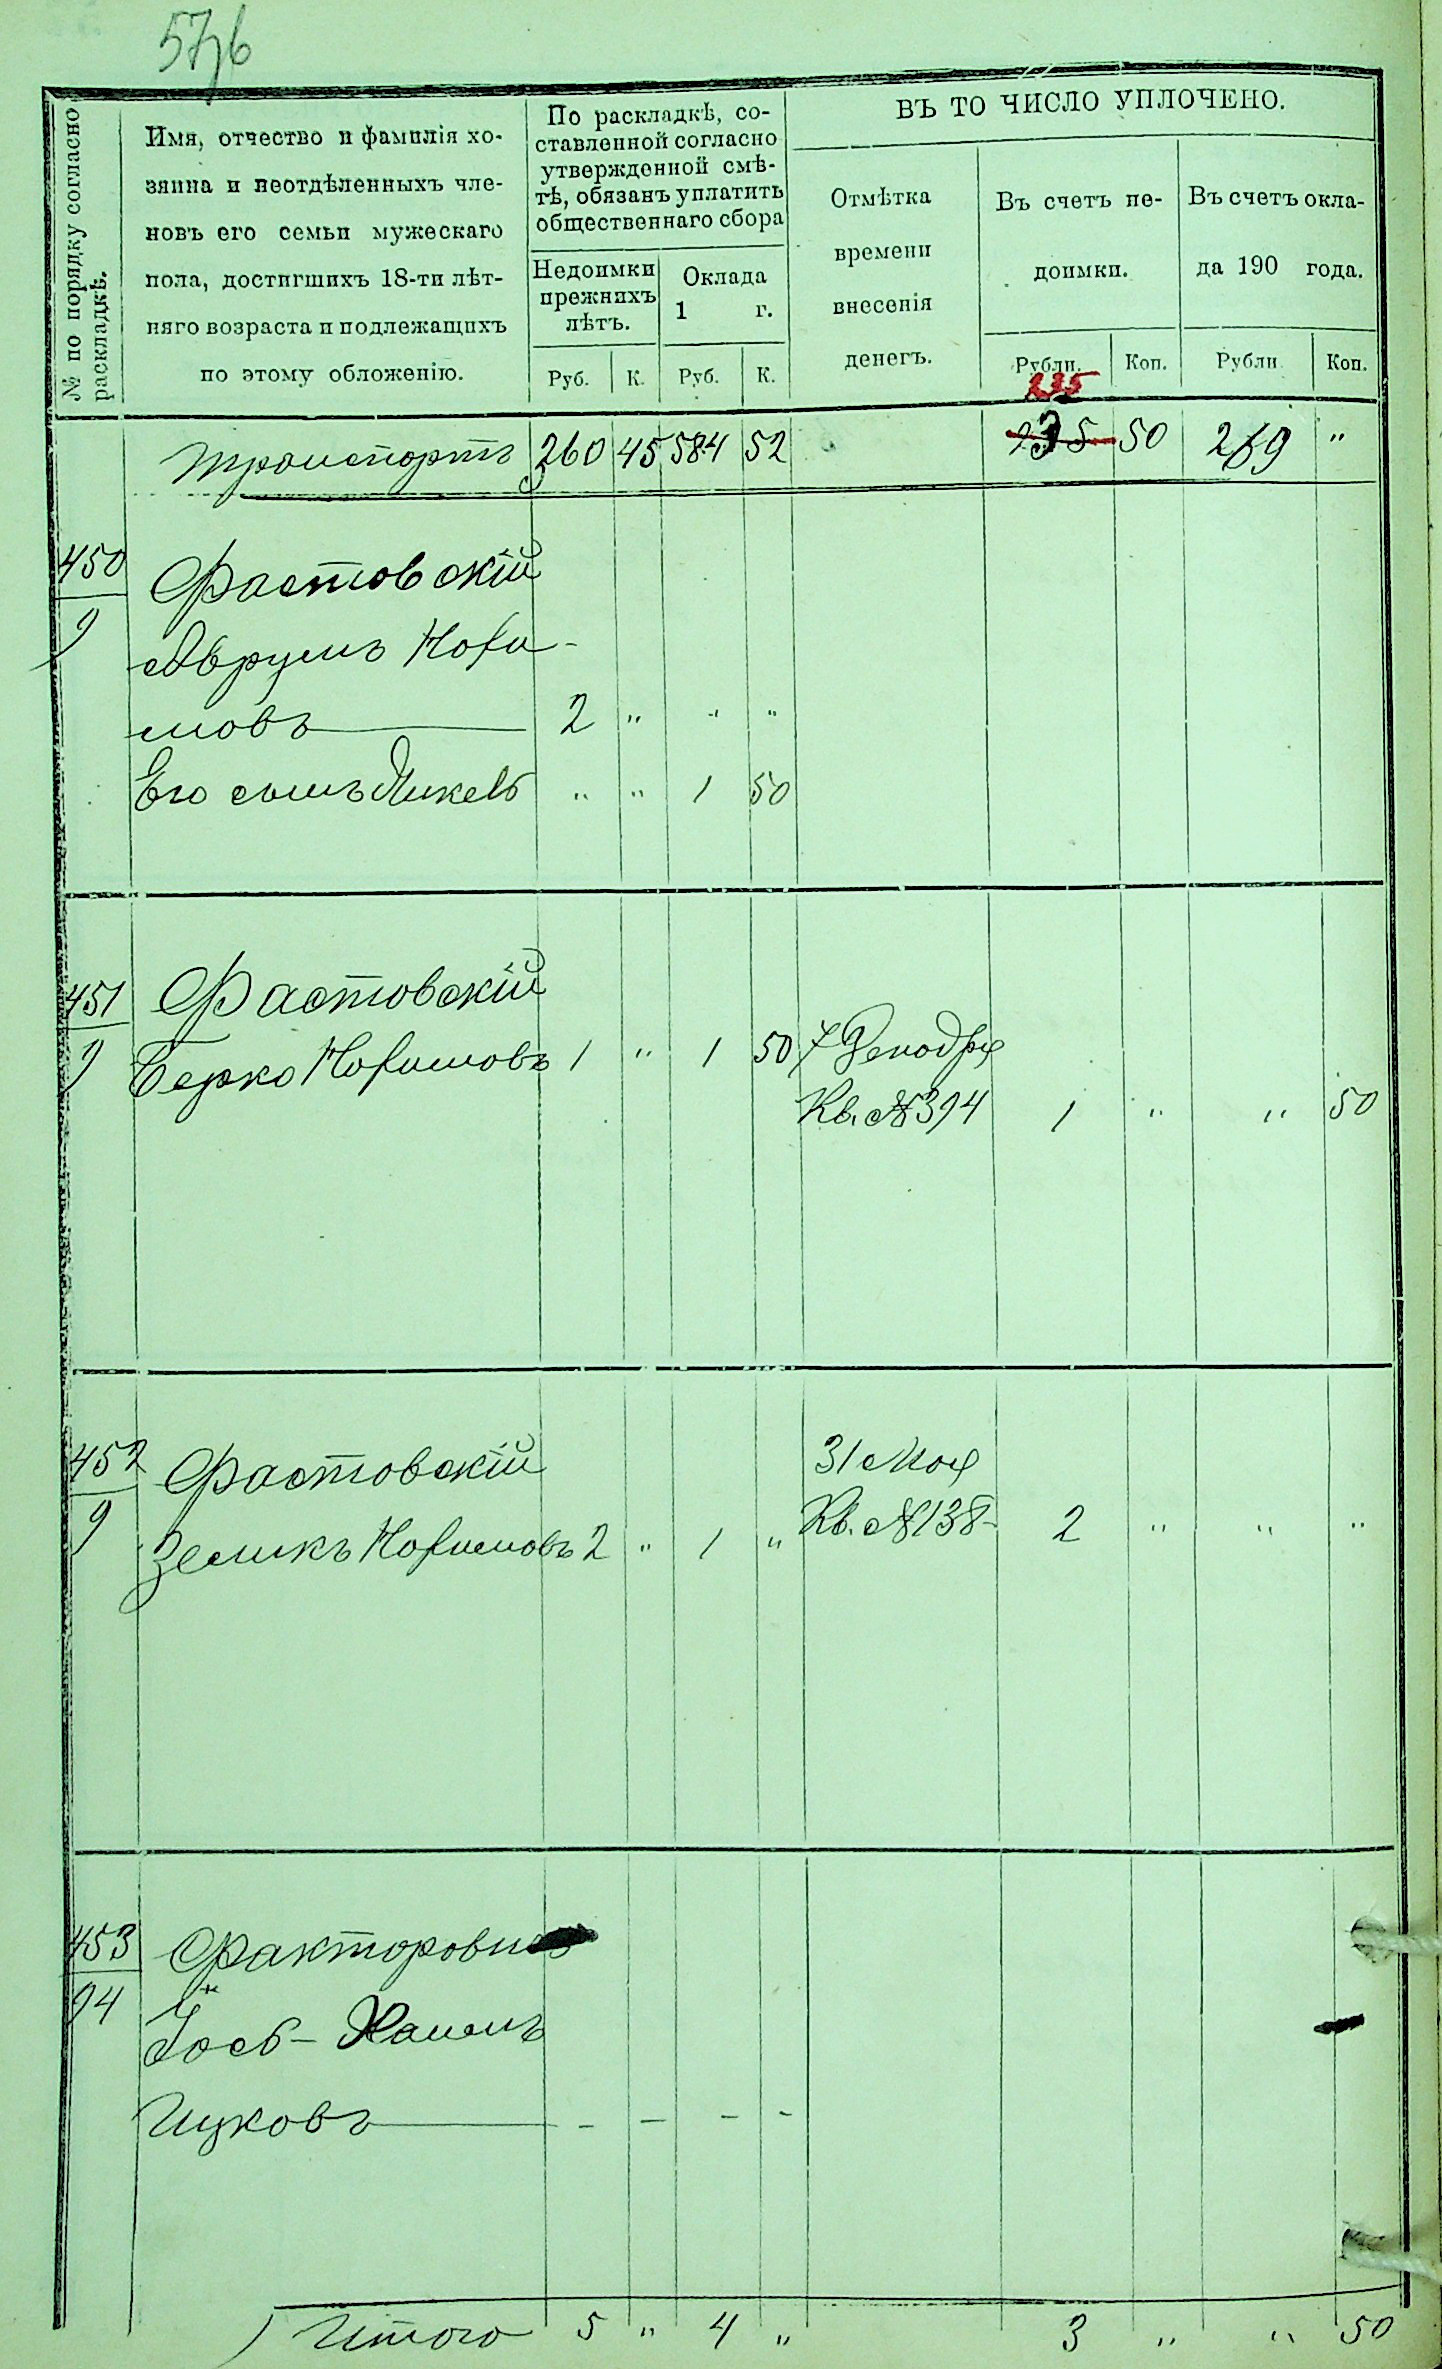 576
№ по порядку согласно
раскладкѣ.
Имя, отчество и фамилія хо-
зяина и неотдѣленныхъ чле-
новъ его семьи мужескаго
пола, достигшихъ 18-ти лѣт-
няго возраста и подлежащихъ
по этому обложенію.
По раскладкѣ, со-
ставленной согласно
утвержденной смѣ-
тѣ, обязанъ уплатить
общественнаго сбора
Недоимки
прежнихъ
лѣтъ.
Оклада
1 г.
Руб. К. Руб. К.
ВЪ ТО ЧИСЛО УПЛОЧЕНО.
Отмѣтка
времени
внесенія
денегъ.
Въ счетъ не-
доимки.
Въ счетъ окла-
да 190 года.
Рубли. Коп. Рубли Коп.
235
транспортъ 260 45 584 52 50 269 "
450 Фастовскій
9 Аврумъ Нохи-
мовъ 2 " " "
Его сынъ " " 1 50
451 Фастовскій
9 Берко Нохимовъ 1 " 1 50 7 Декабря
Кв. №394 1 " " 50
452 Фастовскій 31 Мая
9 Зеликъ Нохимовъ 2 " 1 " Кв. №138 2 " " "
453 Факторови
94 Іось-Хаимъ
Ицковъ - - - -
Итого 5 " 4 " 3 " " 50